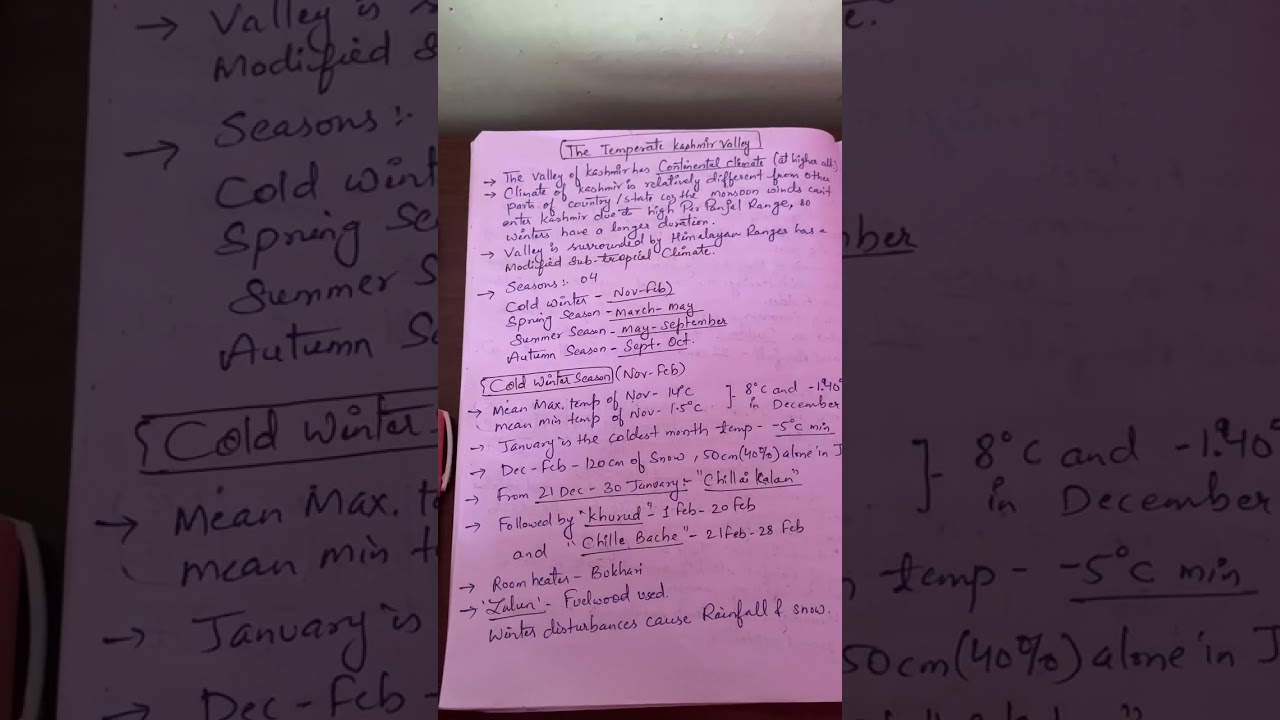 The Temperate Kashmir Valley
→ The valley of Kashmir has Continental climate (at higher alt)
→ Climate of Kashmir is relatively different from other
parts of country/state cos the monsoon winds can't
enter Kashmir due to high Pir Panjal Range, so
winters have a longer duration.
→ Valley is surrounded by Himalayan Ranges has a
Modified Sub-tropical Climate.
→ Seasons:- 04
Cold winter - Nov-Feb)
Spring Season - March-may
Summer Season - may-september
Autumn Season - Sept-Oct.
Cold Winter Season (Nov-Feb)
→ Mean Max. temp of Nov- 14°C ]- 8°C and
mean min temp of Nov- 1.5°C in December
→ January is the coldest month temp - -5°C min
→ Dec-Feb - 120cm of Snow, 50cm(40%) alone in J
→ From 21 Dec - 30 January:- "Chillai Kalan"
→ Followed by "Khurud" - 1 Feb - 20 Feb
and "Chille Bache" - 21 Feb - 28 Feb
→ Room heater - Bokhari
→ 'Zalun' - Fuelwood used.
Winter disturbances cause Rainfall & snow.